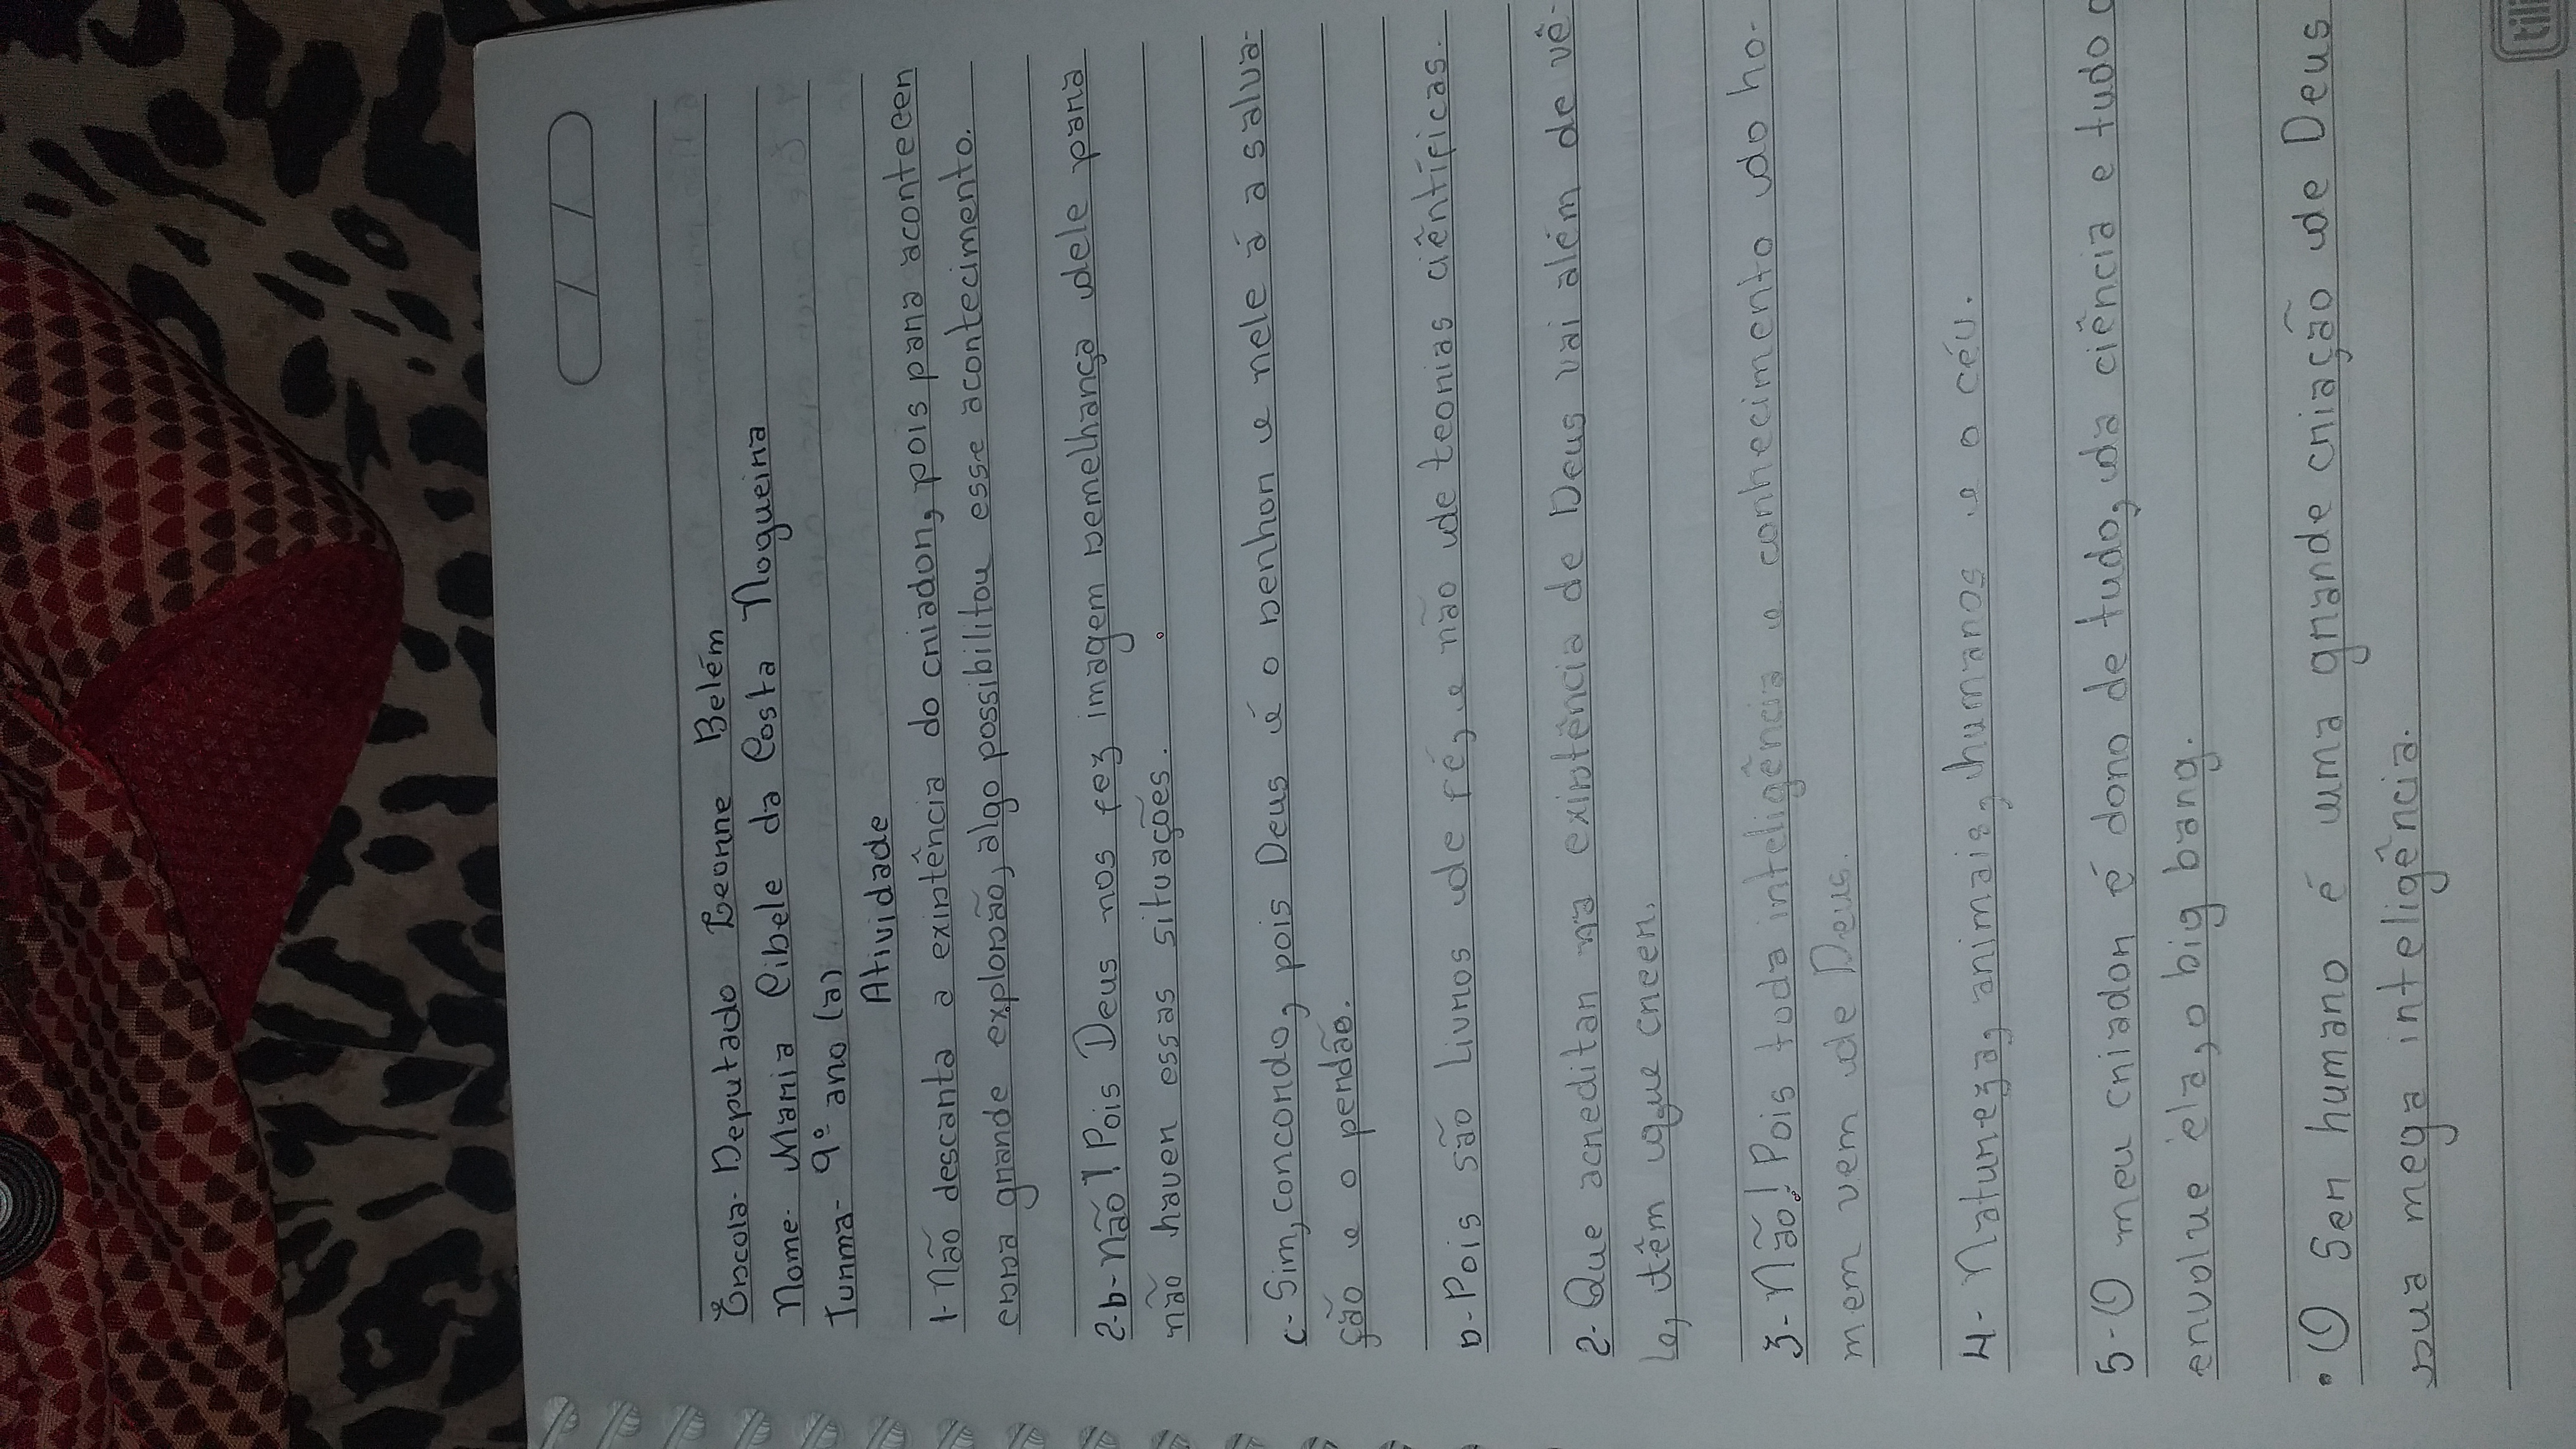 Escola- Deputado Leorne Belém
Nome- Maria Cibele da Costa Nogueira
Turma- 9º ano (a)
Atividade
1- Não descarta a existência do criador, pois para acontecer
essa grande explosão, algo possibilitou esse acontecimento.
2-b-não! Pois Deus nos fez imagem semelhança dele para
não haver essas situações.
c- Sim, concordo, pois Deus é o senhor e nele á a salva-
ção e o perdão.
D- Pois são livros de fé, e não de teorias ciêntíficas.
2- Que acreditar na existência de Deus vai além de vê-
lo, têm que creer.
3- Não! Pois toda inteligência e conhecimento do ho-
mem vem de Deus.
4- Natureza, animais, humanos e o céu.
5- O meu criador é dono de tudo, da ciência e tudo
envolve ela, o big bang.
• O Ser humano é uma grande criação de Deus
sua mega inteligência.